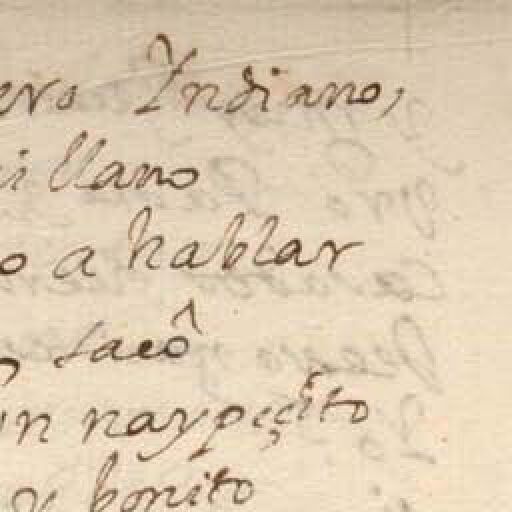 ero Yndiano,
illano
o a hablar
sacô
un naypeçito
y bonito